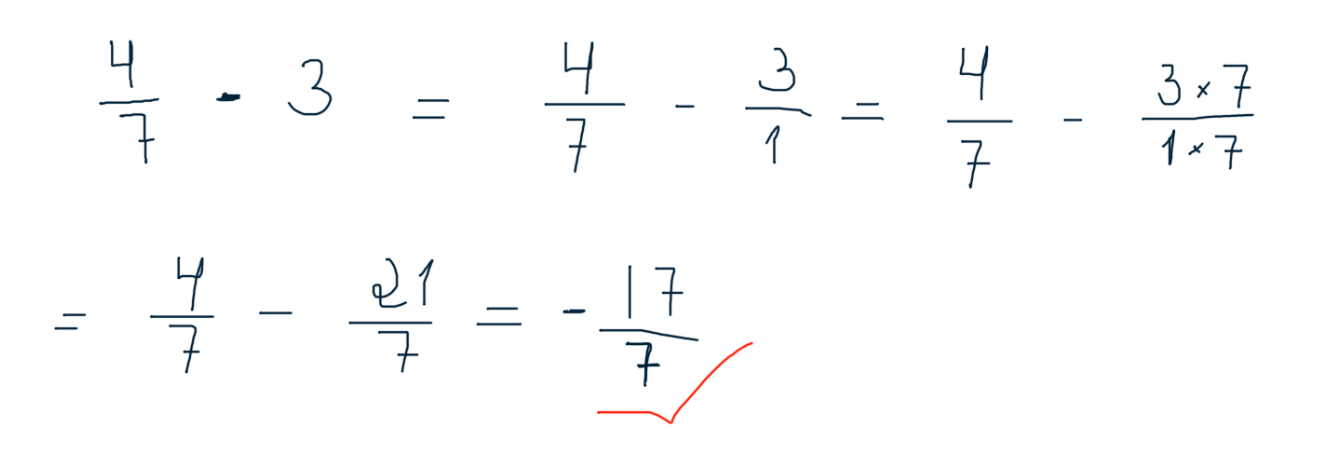 4/7 - 3 = 4/7 - 3/1 = 4/7 - 3×7/1×7
= 4/7 - 21/7 = -17/7